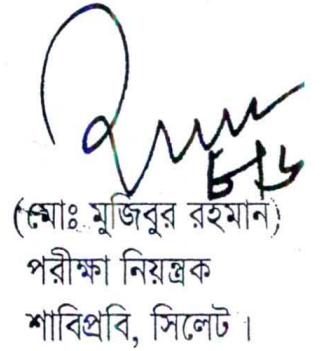 ৮/৬
(মোঃ মুজিবুর রহমান)
পরীক্ষা নিয়ন্ত্রক
শাবিপ্রবি, সিলেট।